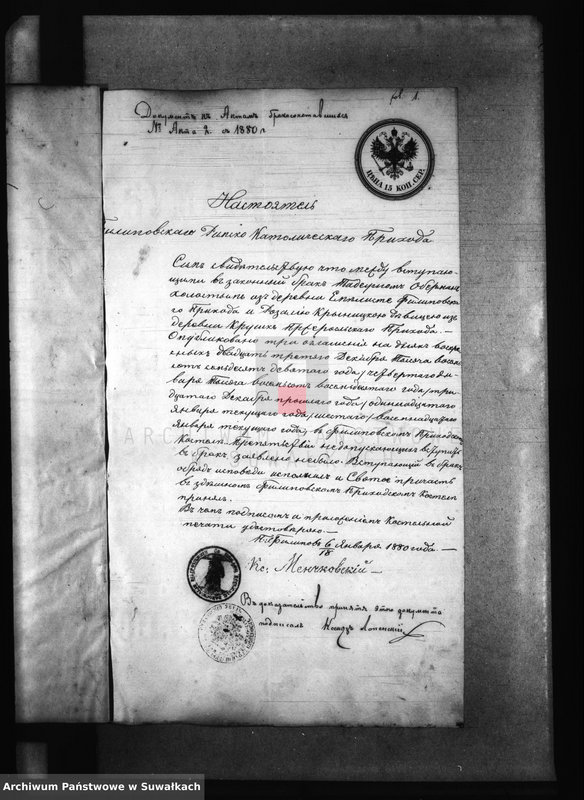 fol. 1.
Документъ къ Актамъ бракосочетавшихся
№ Акта 2. с 1880 г
ЦѢНА 15 КОП. СЕР.
Настоятель
Филиповскаго Римско Католическаго Прихода
Симъ свидѣтельствую что между вступаю-
щими въ законный бракъ
холостымъ изъ деревни Филиповска-
го Прихода и Розалію Крыницкою дѣвицею изъ
деревни Прихода. —
Опубликовано три оглашенія на дняхъ воскре-
сныхъ двадцать третьяго Декабря тысяча восемь
сотъ семьдесятъ девятаго года/четвертаго Ян-
варя тысяча восемьсотъ восемьдесятаго года/три-
дцатаго Декабря прошлаго года/одиннадцатаго
Января текущего года/шестаго/восемнадцатаго
Января текущего года, въ Филиповскомъ Приходскомъ
Костелѣ. Препятствій недопускающихъ вступить
въ бракъ заявлено небыло. Вступающій въ бракъ
обрядъ исповѣди исполнилъ и Святое причастіе
въ здѣшномъ Филиповскомъ Приходскомъ Костелѣ
принялъ.
Въ чемъ подписомъ и приложеніемъ Костельной
печати удостовѣряю. —
П. Филиповъ 6/18 Января 1880 года —
Кс: Менчковскій —
Въ доказательство принятія этого документа
подписалъ
Archiwum Państwowe w Suwałkach